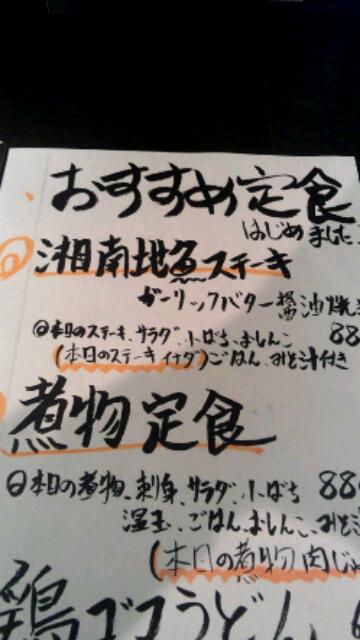 おすすめ定食
はじめました
湘南地魚ステーキ
ガーリックバター醤油焼き
◎本日のステーキ、サラダ、小ばち、おしんこ 88
(本日のステーキ イナダ)ごはん、みそ汁付き
煮物定食
◎本日の煮物、刺身、サラダ、小ばち 88
温玉、ごはん、おしんこ、みそ
(本日の煮物 肉じゃ
鶏ゴマうどん